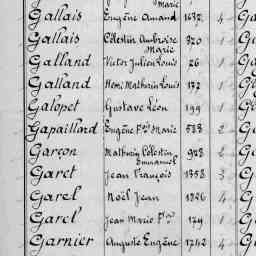 Marie
Gallais Eugène Amand 1632 4
Gallais Célestin Ambroise 320 1
Marie
Galland Victor Julien Louis 26 1
Galland Henri Mathurin Louis 177 1
Galopet Gustave Léon 199 1
Gapaillard Eugène Marie 588 2
Garçon Mathurin Célestin 928 2
Emmanuel
Garet Jean François 1358 3
Garel Noël Jean 1826 4
Garel Jean Marie 179 1
Garnier Auguste Eugène 1742 4